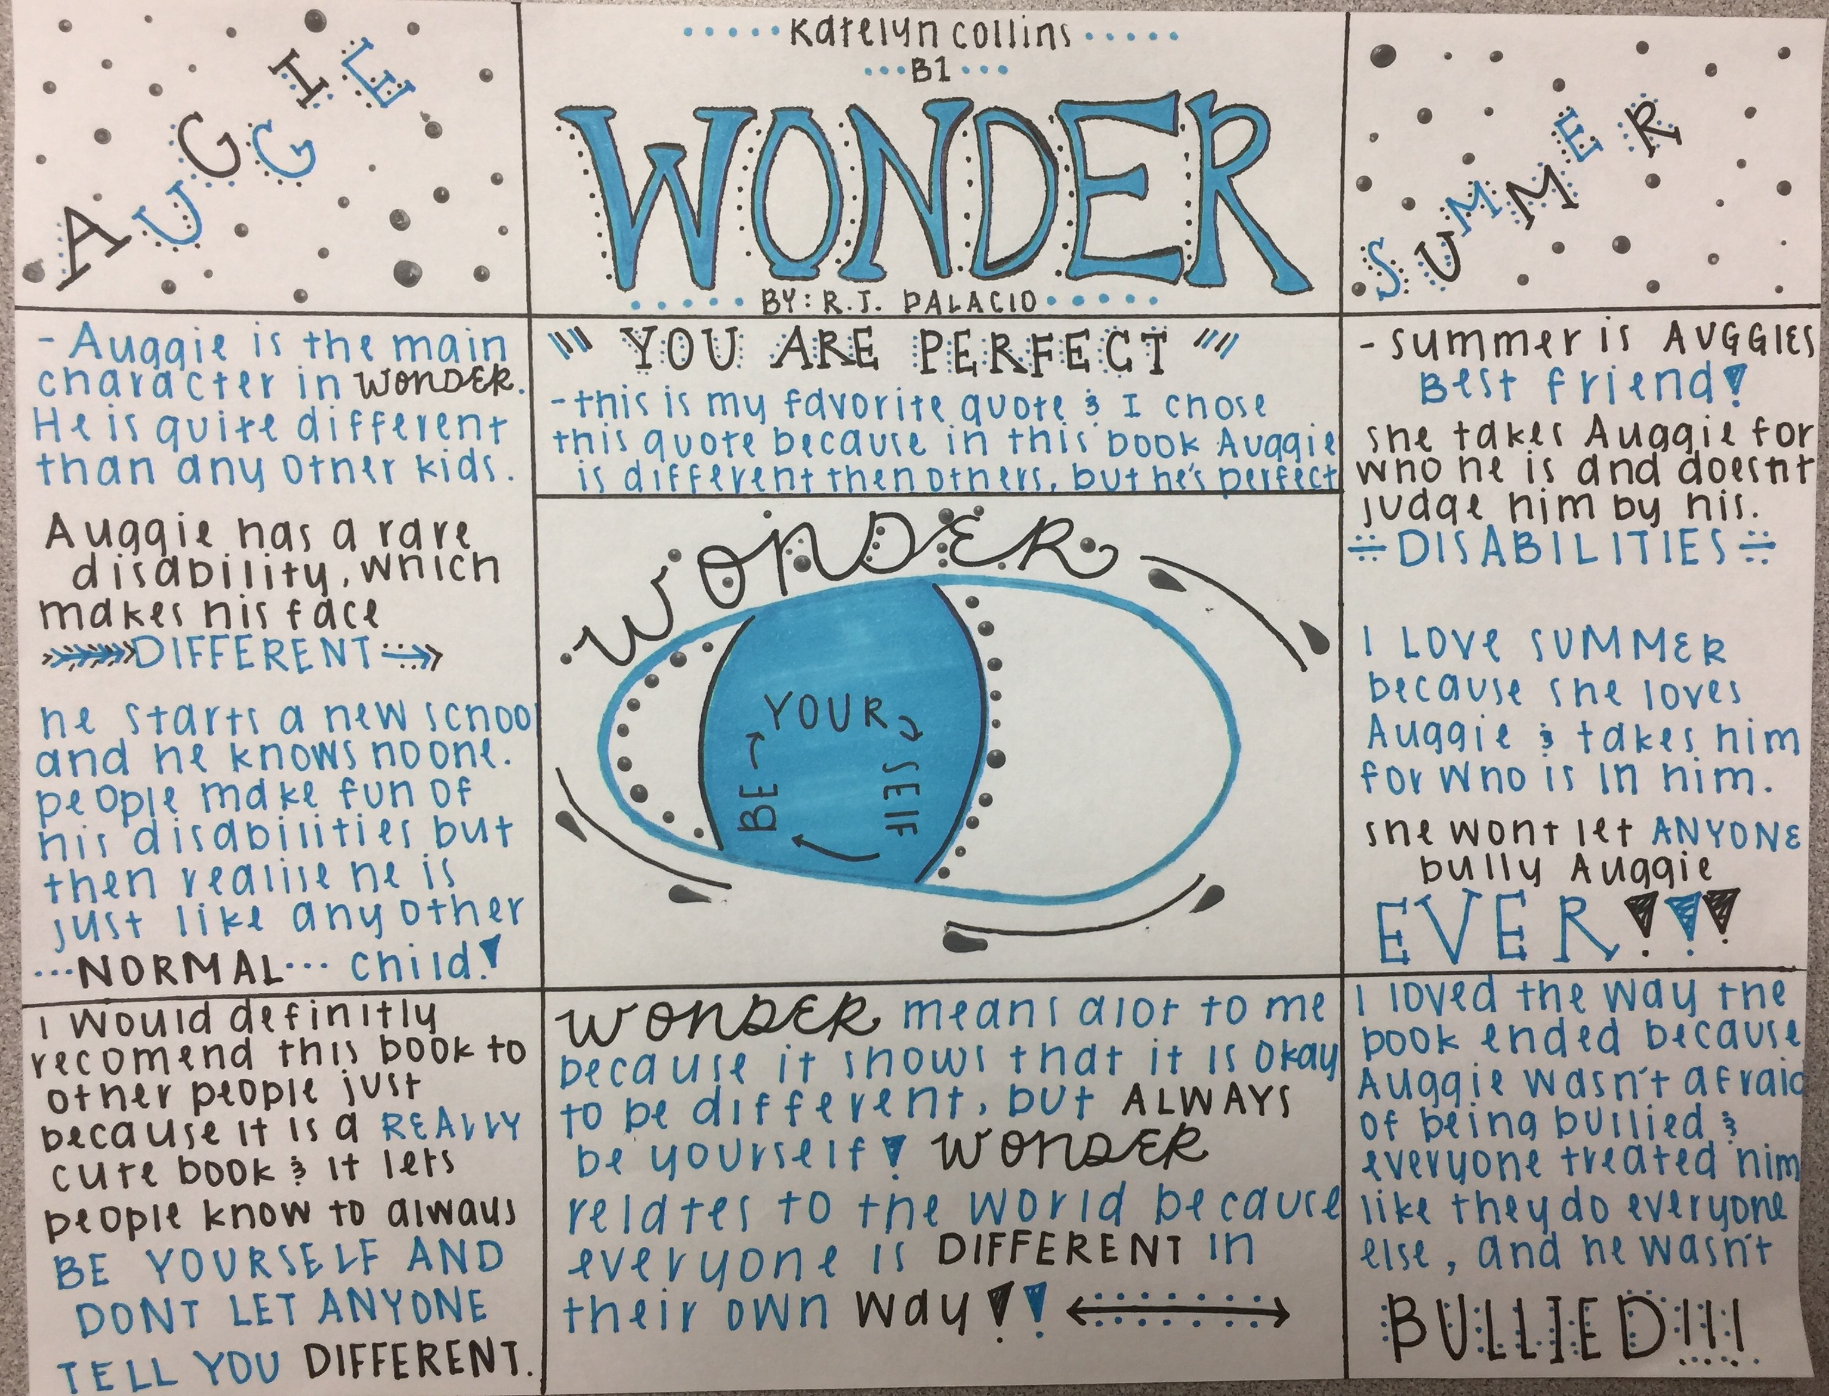 AUGGIE
Katelyn Collins
B1
WONDER
BY: R.J. PALACIO
SUMMER
- Auggie is the main
character in WONDER.
He is quite different
than any other kids.
Auggie has a rare
disability, which
makes his face
DIFFERENT
he starts a new school
and he knows no one.
people make fun of
his disabilities but
then realise he is
just like any other
NORMAL child!
"YOU ARE PERFECT"
- this is my favorite quote & I chose
this quote because in this book Auggie
is different then others, but he's perfect
WONDER
BE YOUR SELF
- summer is AUGGIES
Best friend!
she takes Auggie for
who he is and doesnt
judge him by his.
DISABILITIES
I LOVE SUMMER
because she loves
Auggie & takes him
for who is in him.
she wont let ANYONE
bully Auggie
EVER!!!
I would definitly
recomend this book to
other people just
because it is a REALLY
cute book & it lets
people know to always
BE YOURSELF AND
DONT LET ANYONE
TELL YOU DIFFERENT.
WONDER means alot to me
because it shows that it is okay
to be different, but ALWAYS
be yourself! WONDER
relates to the world because
everyone is DIFFERENT in
their own way!!
I loved the way the
book ended because
Auggie wasn't afraid
of being bullied &
everyone treated him
like they do everyone
else, and he wasn't
BULLIED!!!